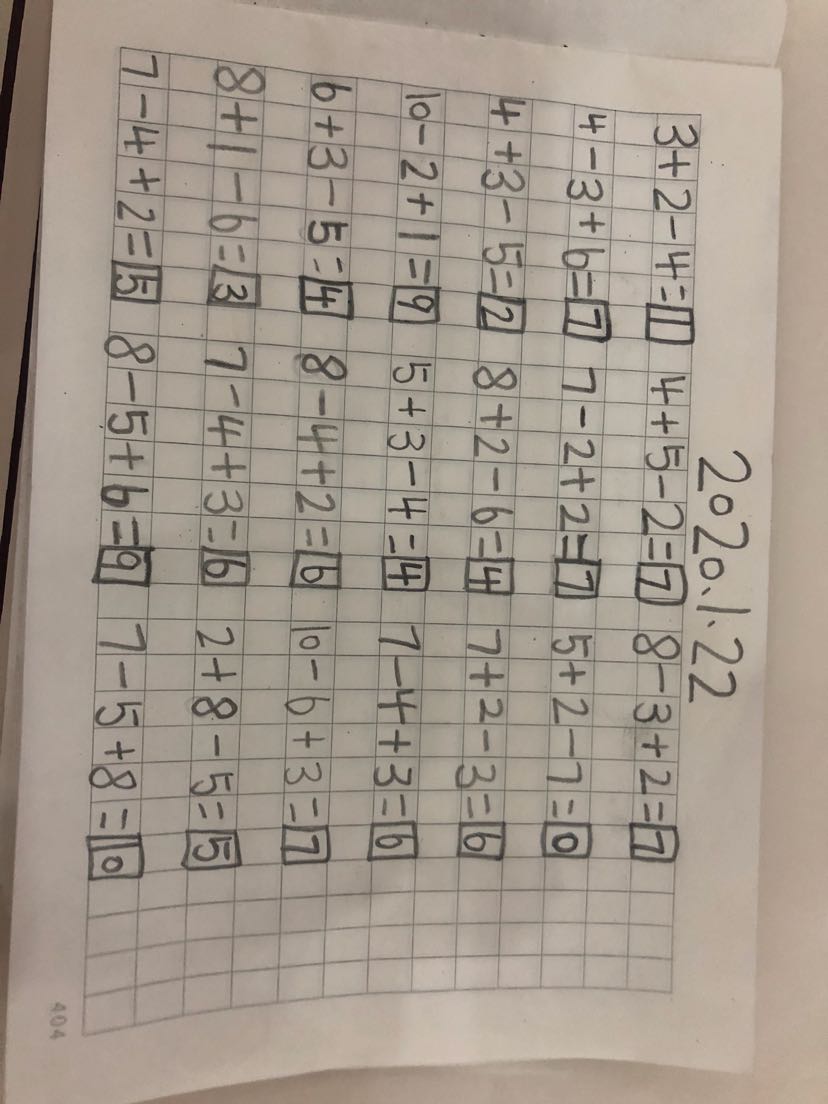 2020.1.22
3+2-4=1 4+5-2=7 8-3+2=7
4-3+6=7 7-2+2=7 5+2-7=0
4+3-5=2 8+2-6=4 7+2-3=6
10-2+1=9 5+3-4=4 7-4+3=6
6+3-5=4 8-4+2=6 10-6+3=7
8+1-6=3 7-4+3=6 2+8-5=5
7-4+2=5 8-5+6=9 7-5+8=10
404